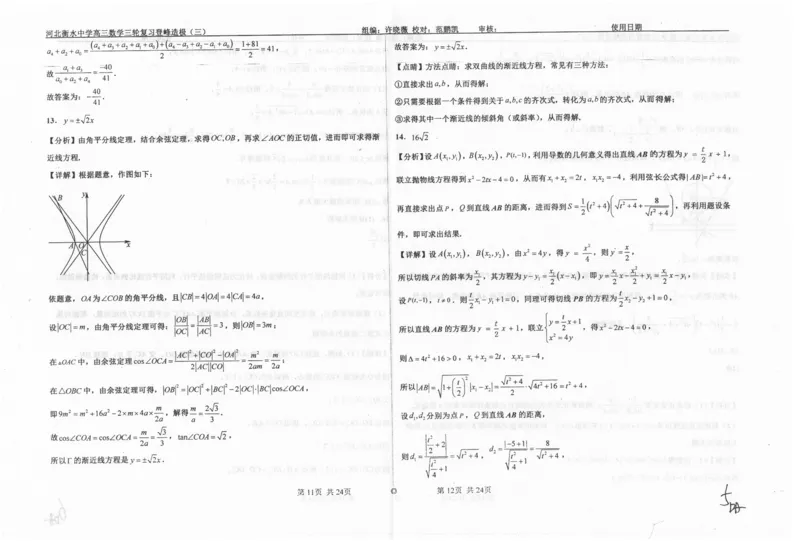 河北衡水中学高三数学三轮复习登峰造极（三）
组编：许晓薇 校对：范鹏凯 审核：
使用日期
a₄+a₂+a₀=((a₄+a₃+a₂+a₁+a₀)+(a₄-a₃+a₂-a₁+a₀))/2=(1+81)/2=41,
故(a₁+a₃)/(a₀+a₂+a₄)=-40/41.
故答案为：-40/41.
13. y=±√2x
【分析】由角平分线定理，结合余弦定理，求得OC,OB，再求∠AOC的正切值，进而即可求得渐
近线方程.
【详解】根据题意，作图如下：
y
B
A O x
C
依题意，OA为∠COB的角平分线，且|CB|=4|OA|=4|CA|=4a,
设|OC|=m，由角平分线定理可得：|OB|/|OC|=|AB|/|AC|=3，则|OB|=3m；
在△OAC中，由余弦定理cos∠OCA=(|AC|²+|CO|²-|OA|²)/(2|AC||CO|)=m²/2am=m/2a；
在△OBC中，由余弦定理可得，|OB|²=|OC|²+|BC|²-2|OC|·|BC|cos∠OCA,
即9m²=m²+16a²-2×m×4a×m/2a，解得m/a=2√3/3.
故cos∠COA=cos∠OCA=m/2a=√3/3，tan∠COA=√2，
所以Γ的渐近线方程是y=±√2x.
第11页 共24页
故答案为：y=±√2x.
【点睛】方法点睛：求双曲线的渐近线方程，常见有三种方法：
①直接求出a,b，从而得解；
②只需要根据一个条件得到关于a,b,c的齐次式，转化为a,b的齐次式，从而得解；
③求得其中一个渐近线的倾斜角（或斜率），从而得解.
14. 16√2
【分析】设A(x₁,y₁)，B(x₂,y₂)，P(t,-1)，利用导数的几何意义得出直线AB的方程为y=t/2 x+1，
联立抛物线方程得到x²-2tx-4=0，从而有x₁+x₂=2t，x₁x₂=-4，利用弦长公式得|AB|=t²+4，
再直接求出点P，Q到直线AB的距离，进而得到S=1/2(t²+4)(√(t²+4)+8/√(t²+4))，再利用题设条
件，即可求出结果.
【详解】设A(x₁,y₁)，B(x₂,y₂)，由x²=4y，得y=x²/4，则y'=x/2，
所以切线PA的斜率为x₁/2，其方程为y-y₁=x₁/2(x-x₁)，即y=x₁/2 x-x₁²/2+y₁=x₁/2 x-y₁，
设P(t,-1)，t≠0，则t/2 x₁-y₁+1=0，同理可得切线PB的方程为t/2 x₂-y₂+1=0，
所以直线AB的方程为y=t/2 x+1，联立{y=t/2 x+1 x²=4y，得x²-2tx-4=0，
则Δ=4t²+16>0，x₁+x₂=2t，x₁x₂=-4，
所以|AB|=√(1+(t/2)²)|x₁-x₂|=√(t²+4)/2·√(4t²+16)=t²+4，
设d₁,d₂分别为点P，Q到直线AB的距离，
则d₁=(t²/2+2)/√(t²/4+1)=√(t²+4)，d₂=|-5+1|/√(t²/4+1)=8/√(t²+4)，
第12页 共24页